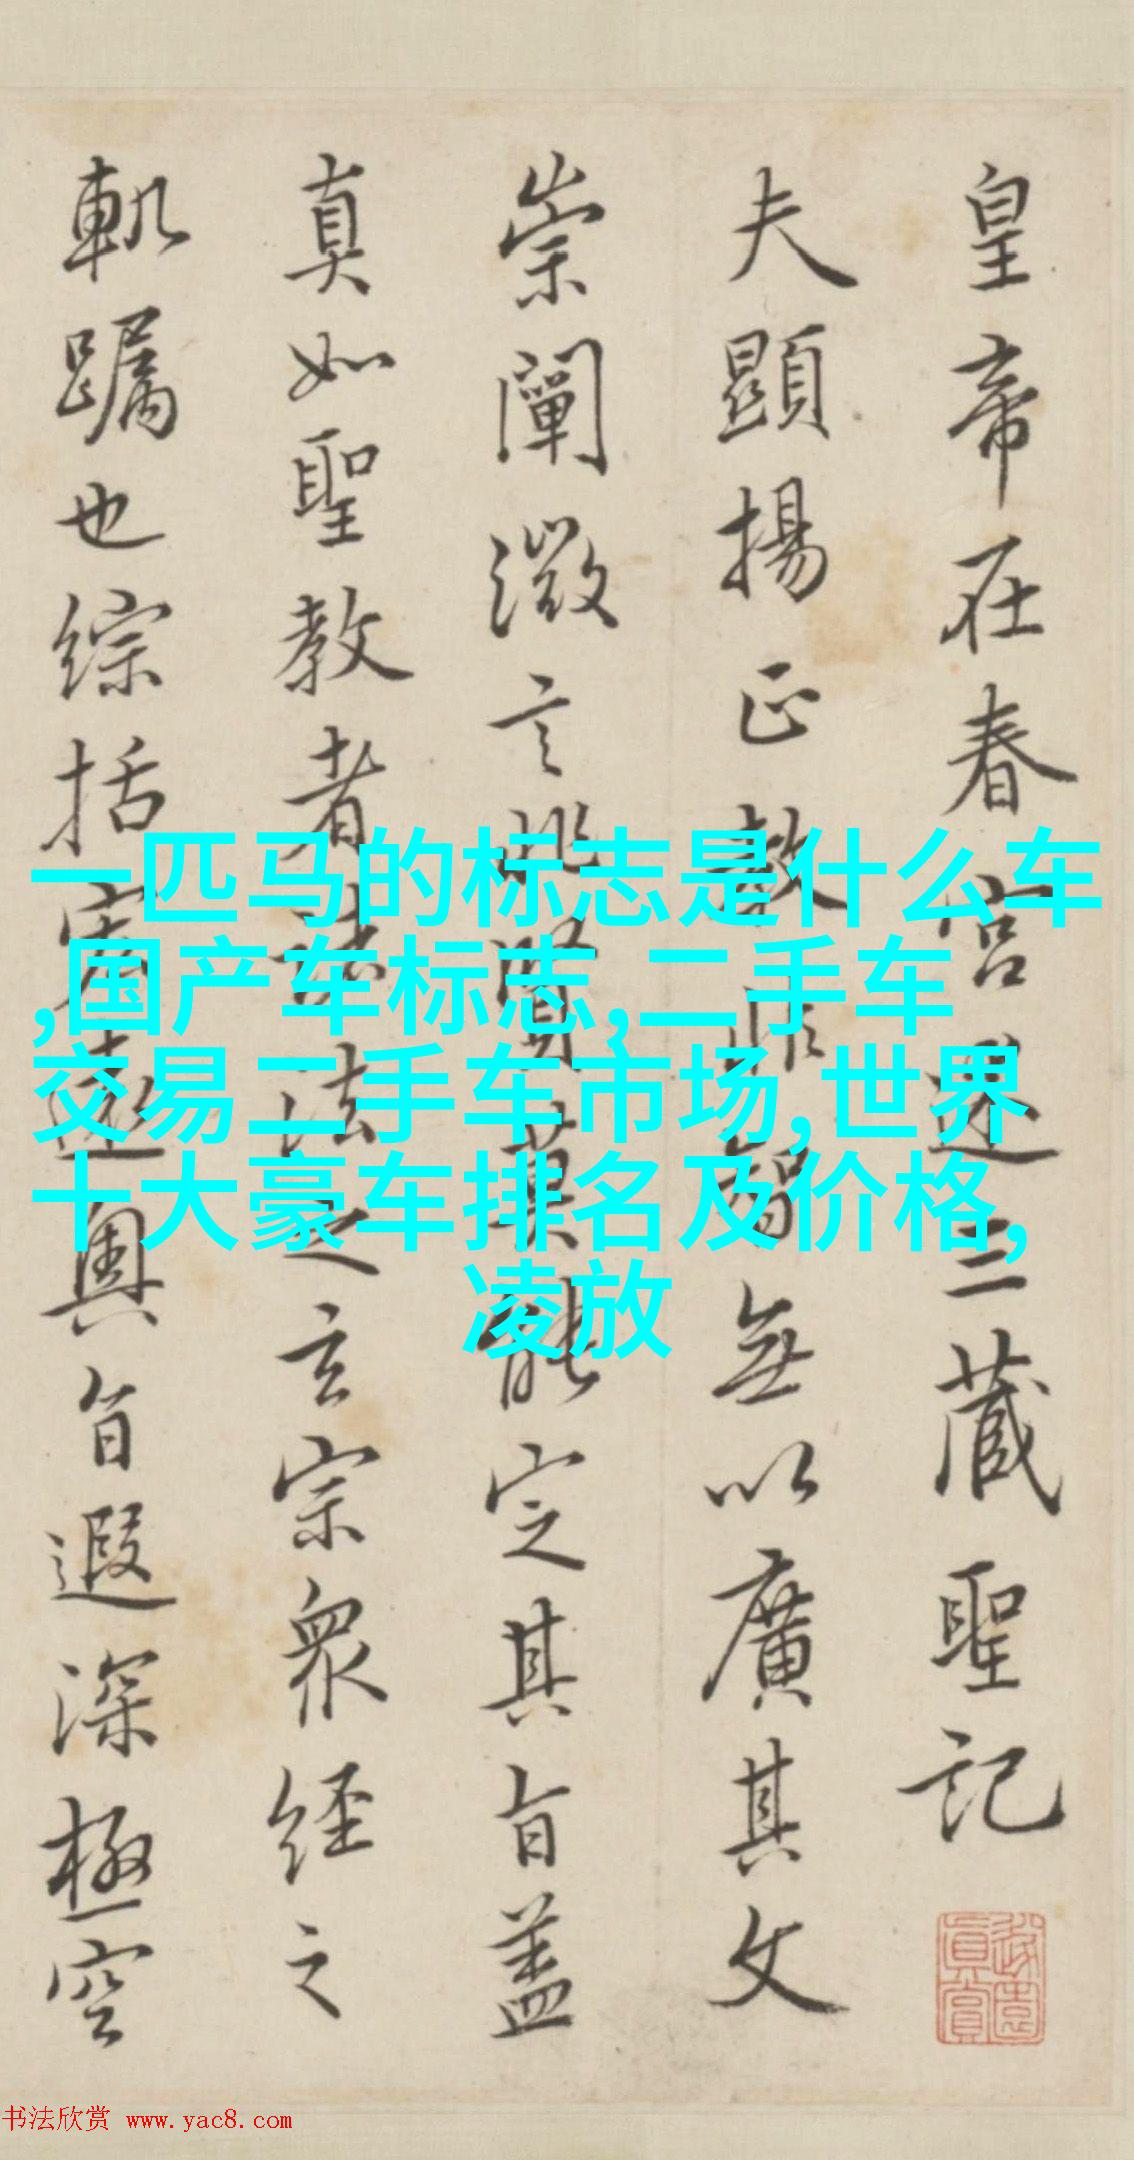 皇帝在春宫述三藏聖記
夫顯揚正教非智無以廣其文
崇闡微言非賢莫能定其旨蓋
真如聖教者諸法之玄宗衆经之
軏躅也综括宏遠奧旨遐深極空
一匹马的标志是什么车
,国产车标志,二手车
交易二手车市场,世界
十大豪车排名及价格,
凌放
真賞
书法欣赏 www.yac8.com